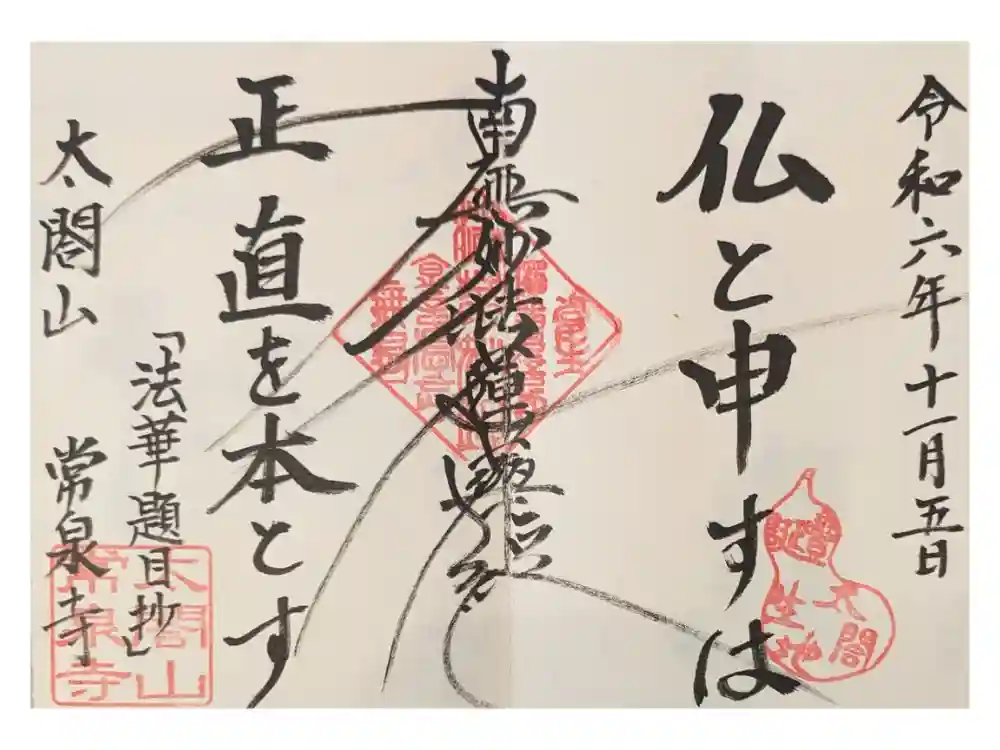 令和六年十一月五日
仏と申すは
南無妙法蓮華経
正直を本とす
「法華題目抄」
太閤山 常泉寺
太閤
生地
太閤山
常泉寺